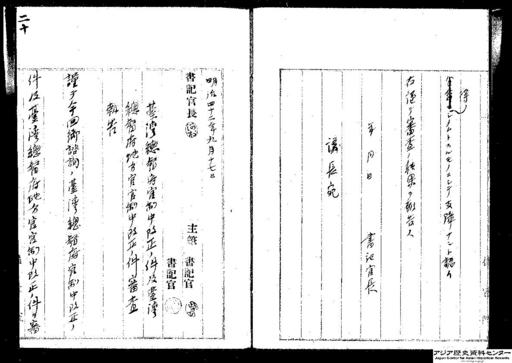 右謹テ審査ノ結果ヲ報告ス
年月日
書記官長
議長宛
二十
明治四十二年九月十七日
書記官長
主管 書記官
書記官
臺灣總督府官制中改正ノ件及臺灣
總督府地方官官制中改正ノ件審査
報告
謹テ今回御諮詢ノ臺灣總督府官制中改正ノ
件及臺灣總督府地方官官制中改正ノ件ヲ審
アジア歴史資料センター
Japan Center for Asian Historical Records